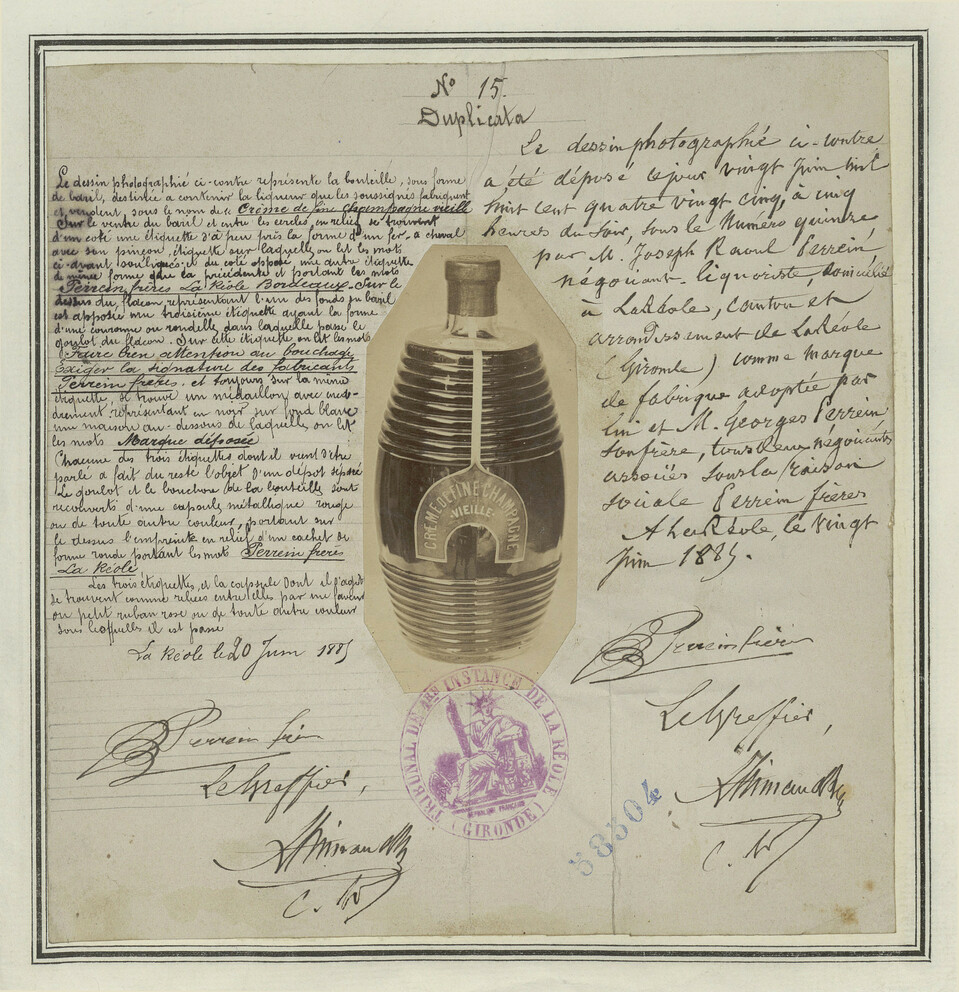 No 15.
Duplicata
Le dessin photographié ci-contre représente la bouteille, sous forme
de baril, destinée à contenir la liqueur que les soussignés fabriquent
et vendent, sous le nom de la Crème de fine Champagne vieille
Sur le ventre du baril et entre les cercles en relief se trouvent
d'un coté une étiquette d'à peu près la forme d'un fer-à cheval
avec son pinçon, étiquette sur laquelle on lit les mots
ci-devant soulignés; et du coté opposé une autre étiquette
de même forme que la précédente et portant les mots
Perrein frères La Réole Bordeaux. Sur le
dessus du flacon représentant l'un des fonds du baril
est apposée une troisième étiquette ayant la forme
d'une couronne ou rondelle dans laquelle passe le
goulot du flacon. Sur cette étiquette on lit les mots
Faire bien attention au bouchage
Exiger la signature des fabricants
Perrein frères. et toujours sur la même
étiquette, se trouve un médaillon avec enca-
drement représentant en noir sur fond blanc
une maison au-dessous de laquelle on lit
les mots Marque déposée
Chacune des trois étiquettes dont il vient d'être
parlé a fait du reste l'objet d'un dépot séparé
Le goulot et le bouchon de la bouteille sont
recouverts d'une capsule métallique rouge
ou de toute autre couleur, portant sur
le dessus l'empreinte en relief d'un cachet de
forme ronde portant les mots Perrein frères
La Réole
Les trois étiquettes, et la capsule dont il s'agit
se trouvent comme reliées entre elles par une faveur
ou petit ruban rose ou de toute autre couleur
sous lesquelles il est passé
La Réole le 20 Juin 1885
Perrein frères
Le Greffier,
CREME DE FINE CHAMPAGNE
VIEILLE
Le dessin photographié ci-contre
a été déposé le jour vingt Juin mil
huit cent quatre vingt cinq, à cinq
heures du soir, sous le Numéro quinze
par M. Joseph Raoul Perrein,
négociant-liquoriste, domicilié
à La Réole, canton et
arrondissement de La Réole
(Gironde) comme marque
de fabrique adoptée par
lui et M. Georges Perrein
son frère, tous deux négociants
associés sous la raison
sociale Perrein frères
A La Réole, le vingt
Juin 1885.
Perrein frères
Le Greffier,
TRIBUNAL DE 1ERE INSTANCE DE LA REOLE (GIRONDE)
REPUBLIQUE FRANÇAISE
38304